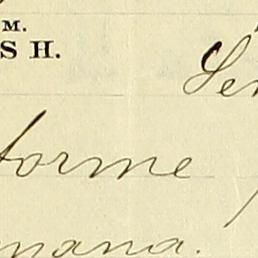 M.
S H.
Sen
forme
mana.